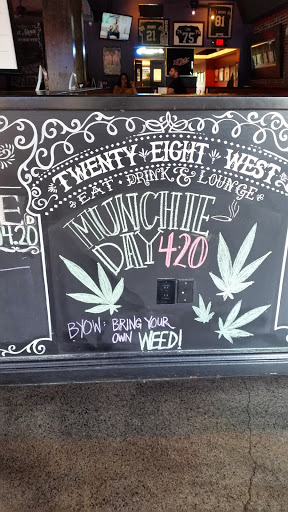 21
75
81
TWENTY·EIGHT·WEST
EAT·DRINK & LOUNGE
MUNCHIE
DAY 420
E
4.20
BYOW: BRING YOUR
OWN WEED!